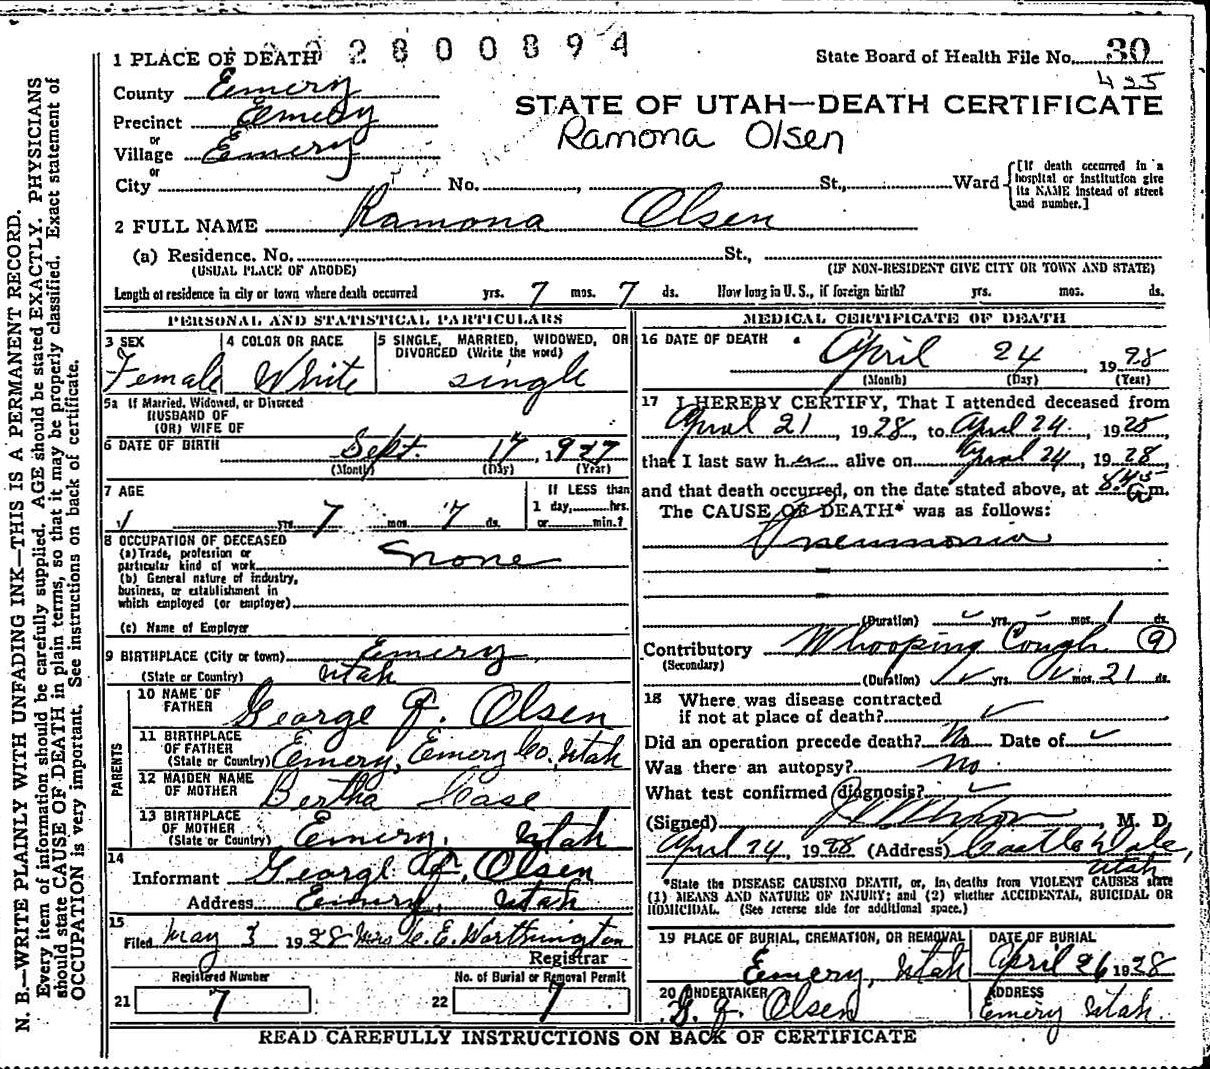 N. B.—WRITE PLAINLY WITH UNFADING INK—THIS IS A PERMANENT RECORD.
Every item of information should be carefully supplied. AGE should be stated EXACTLY. PHYSICIANS
should state CAUSE OF DEATH in plain terms, so that it may be properly classified. Exact statement of
OCCUPATION is very important. See instructions on back of certificate.
2800894
1 PLACE OF DEATH
State Board of Health File No. 30
425
County Emery
STATE OF UTAH—DEATH CERTIFICATE
Precinct Emery
Ramona Olsen
or
Village Emery
or
City No. St., Ward
[If death occurred in a
hospital or institution give
its NAME instead of street
and number.]
2 FULL NAME Ramona Olsen
(a) Residence. No. St.,
(USUAL PLACE OF ABODE) (IF NON-RESIDENT GIVE CITY OR TOWN AND STATE)
Length of residence in city or town where death occurred yrs. 7 mos. 7 ds. How long in U. S., if foreign birth? yrs. mos. ds.
PERSONAL AND STATISTICAL PARTICULARS
3 SEX
Female
4 COLOR OR RACE
White
5 SINGLE, MARRIED, WIDOWED, OR
DIVORCED (Write the word)
single
5a If Married, Widowed, or Divorced
HUSBAND OF
(OR) WIFE OF
6 DATE OF BIRTH Sept. 17, 1927
(Month) (Day) (Year)
7 AGE
yrs. 7 mos. 7 ds.
If LESS than
1 day, hrs.
or min.?
8 OCCUPATION OF DECEASED
(a) Trade, profession or
particular kind of work none
(b) General nature of industry,
business, or establishment in
which employed (or employer)
(c) Name of Employer
9 BIRTHPLACE (City or town) Emery,
(State or Country) Utah
PARENTS
10 NAME OF
FATHER George J. Olsen
11 BIRTHPLACE
OF FATHER
(State or Country) Emery, Emery Co., Utah
12 MAIDEN NAME
OF MOTHER Bertha Case
13 BIRTHPLACE
OF MOTHER
(State or Country) Emery, Utah
14
Informant George J. Olsen
Address Emery, Utah
15
Filed May 3 1928 Mrs C. E. Worthington
Registrar
Registered Number No. of Burial or Removal Permit
21 7 22 7
MEDICAL CERTIFICATE OF DEATH
16 DATE OF DEATH April 24 1928
(Month) (Day) (Year)
17 I HEREBY CERTIFY, That I attended deceased from
April 21, 1928, to April 24, 1928
that I last saw her alive on April 24, 1928
and that death occurred, on the date stated above, at 8:45 m.
The CAUSE OF DEATH* was as follows:
Pneumonia
(Duration) yrs. mos. 1 ds.
Contributory Whooping Cough 9
(Secondary)
(Duration) yrs. mos. 21 ds.
18 Where was disease contracted
if not at place of death?
Did an operation precede death? No Date of
Was there an autopsy? No.
What test confirmed diagnosis?
(Signed) , M. D.
April 24, 1928 (Address) Castle Dale,
Utah
*State the DISEASE CAUSING DEATH, or, in deaths from VIOLENT CAUSES state
(1) MEANS AND NATURE OF INJURY; and (2) whether ACCIDENTAL, SUICIDAL OR
HOMICIDAL. (See reverse side for additional space.)
19 PLACE OF BURIAL, CREMATION, OR REMOVAL
Emery, Utah
DATE OF BURIAL
April 26 1928
20 UNDERTAKER
G. J. Olsen
ADDRESS
Emery Utah.
READ CAREFULLY INSTRUCTIONS ON BACK OF CERTIFICATE